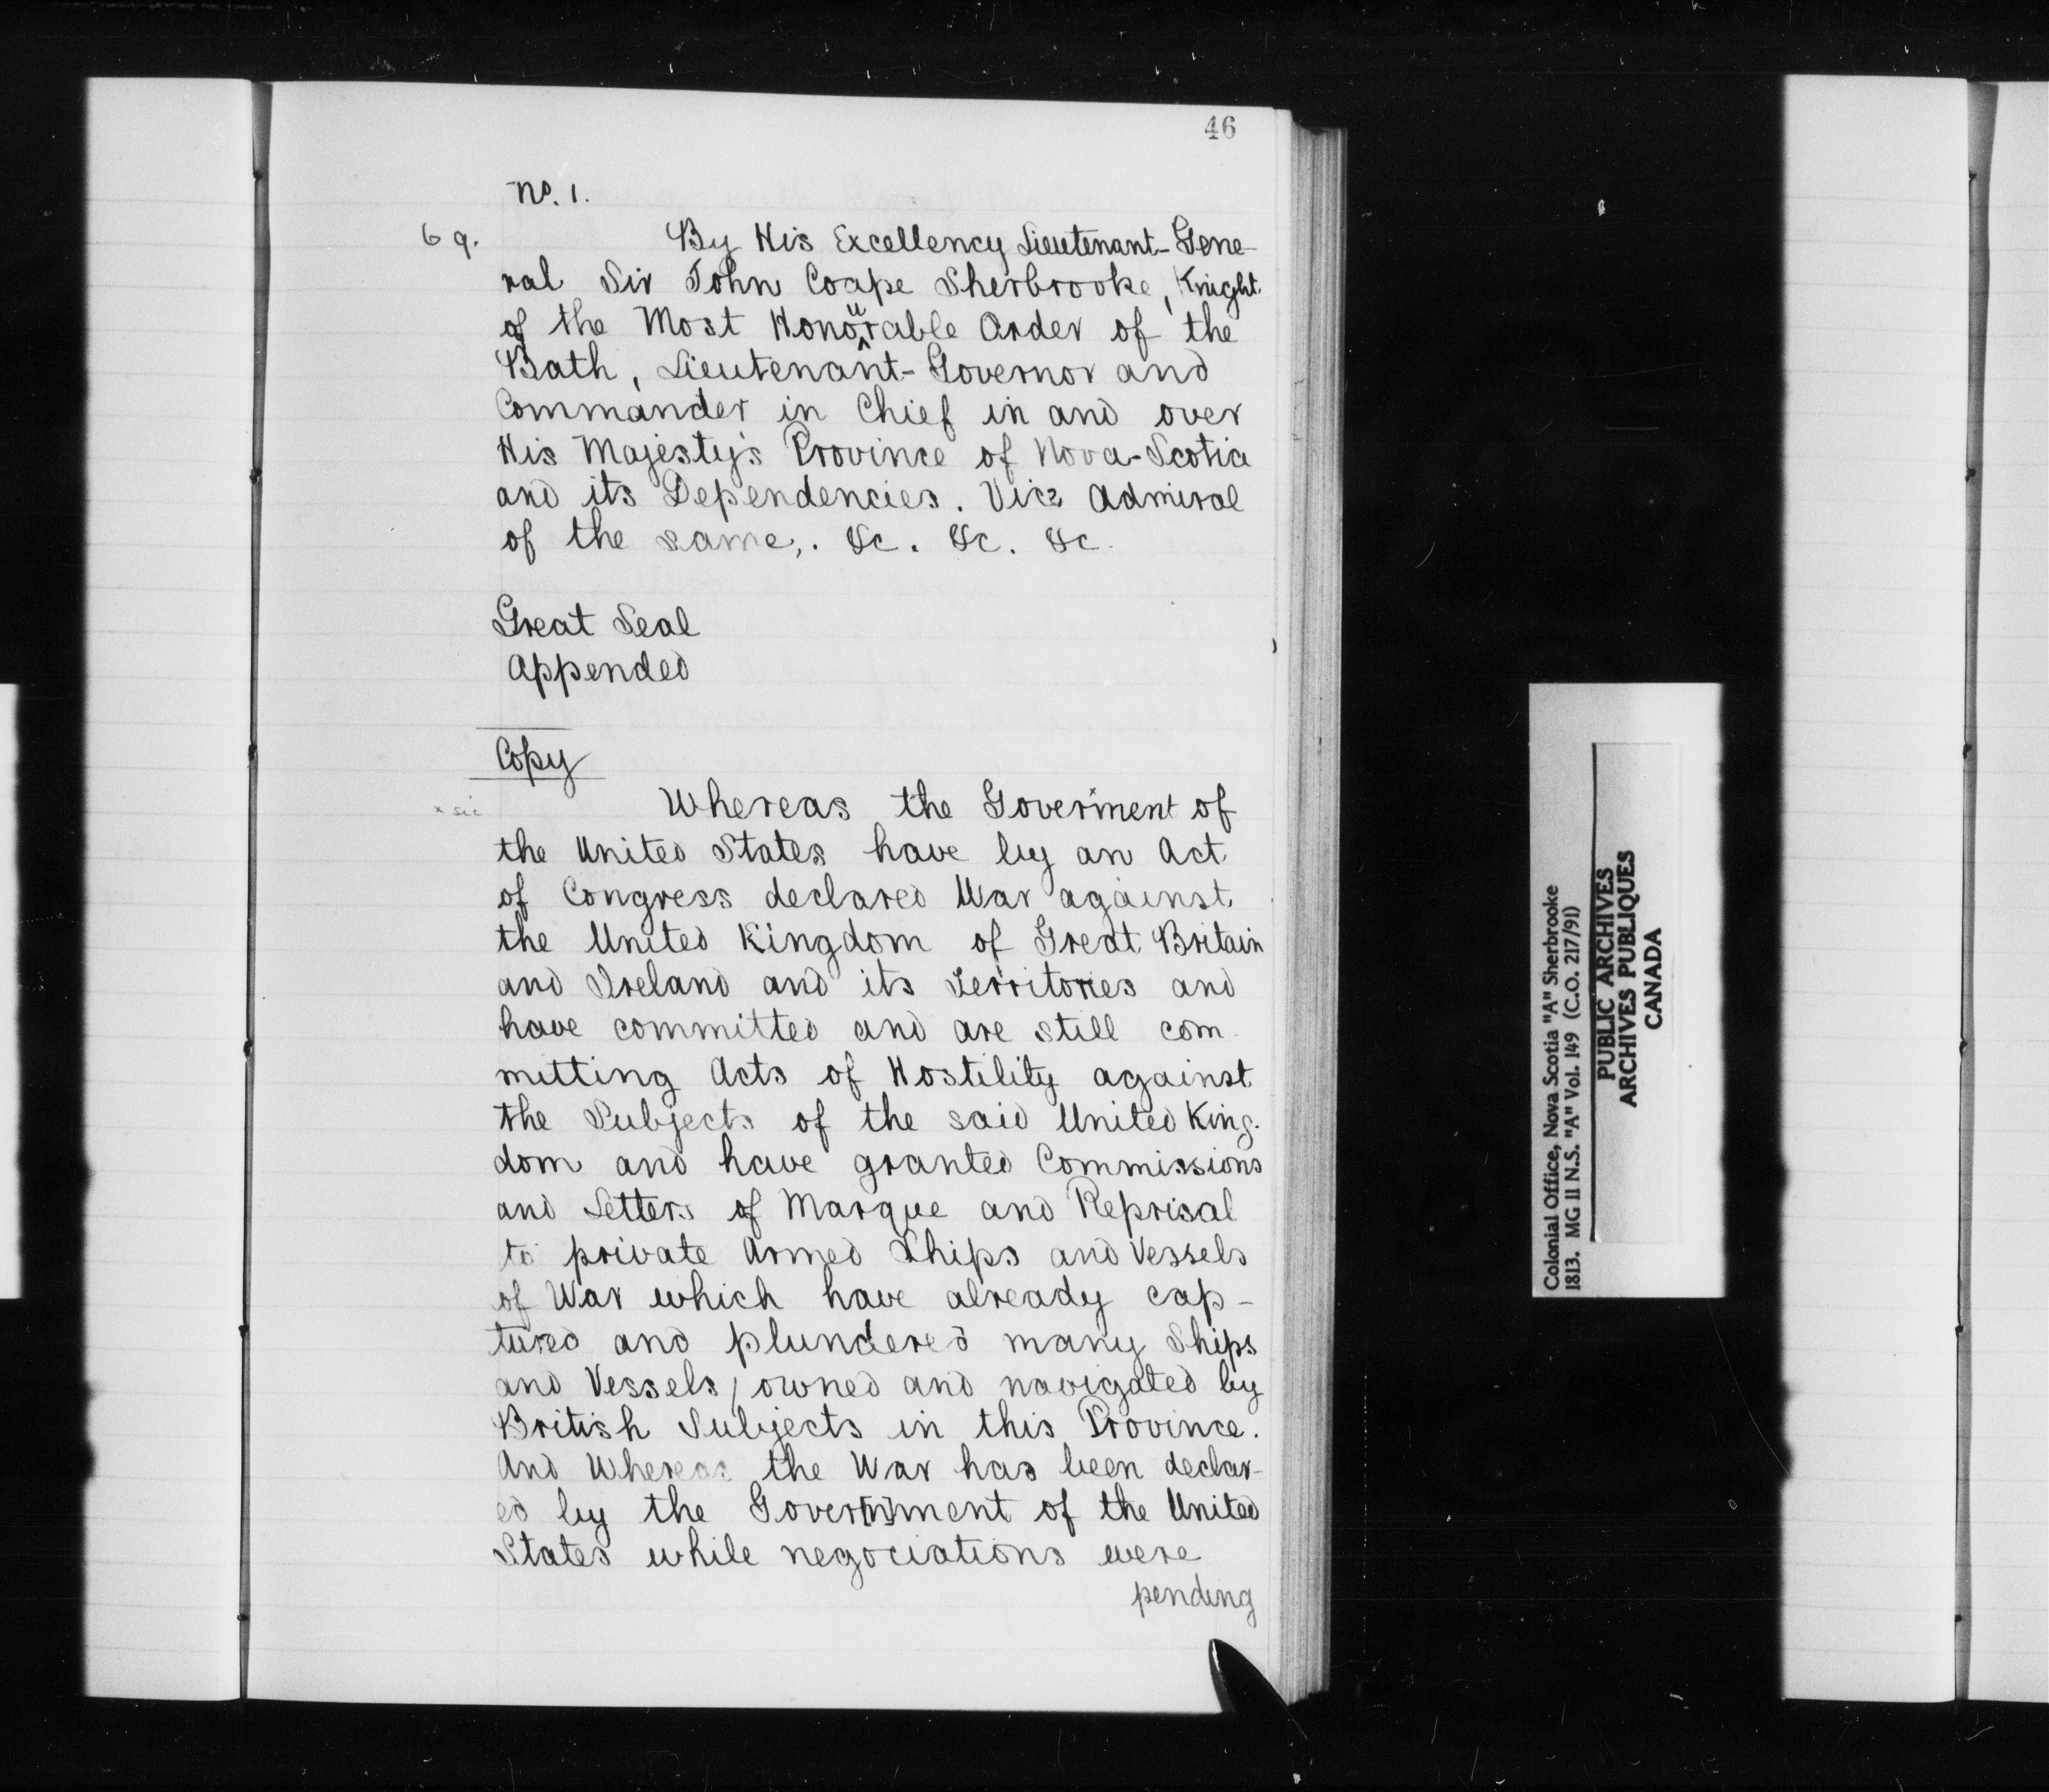 46
No. 1.
69.
By His Excellency Lieutenant-Gene-
ral Sir John Coape Sherbrooke, Knight
of the Most Honourable Order of the
Bath, Lieutenant-Governor and
Commander in Chief in and over
His Majesty's Province of Nova-Scotia
and its Dependencies. Vice Admiral
of the same,. &c. &c. &c.
Great Seal
Appended
Copy
x sic
Whereas the Goverment of
the United States have by an Act
of Congress declared War against
the United Kingdom of Great Britain
and Ireland and its Territories and
have committed and are still com-
mitting Acts of Hostility against
the Subjects of the said United King-
dom and have granted Commissions
and Letters of Marque and Reprisal
to private Armed Ships and Vessels
of War which have already cap-
tured and plundered many Ships
and Vessels, owned and navigated by
British Subjects in this Province.
And Whereas the War has been declar-
ed by the Gover[n]ment of the United
States while negociations were
pending
Colonial Office, Nova Scotia "A" Sherbrooke
1813. MG 11 N.S. "A" Vol. 149 (C.O. 217/91)
PUBLIC ARCHIVES
ARCHIVES PUBLIQUES
CANADA